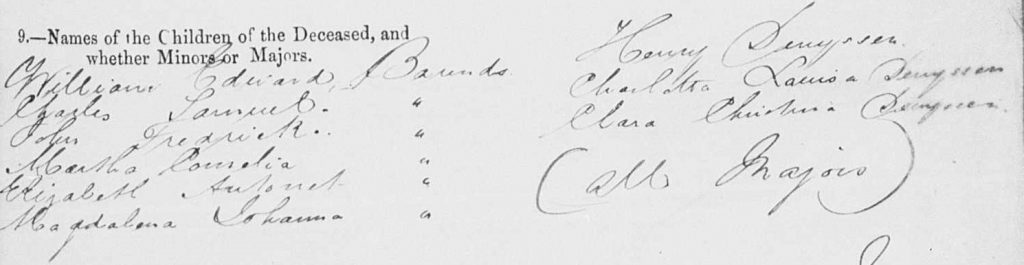 9.—Names of the Children of the Deceased, and
whether Minors or Majors.
William Edward, Barends.
Charles Samuel. "
John Fredrick. "
Martha Cornelia "
Elizabeth Antonet "
Magdalena Johanna "
Henry Denyssen.
Charlotta Louisa Denyssen
Clara Christina Denyssen.
(all Majors)